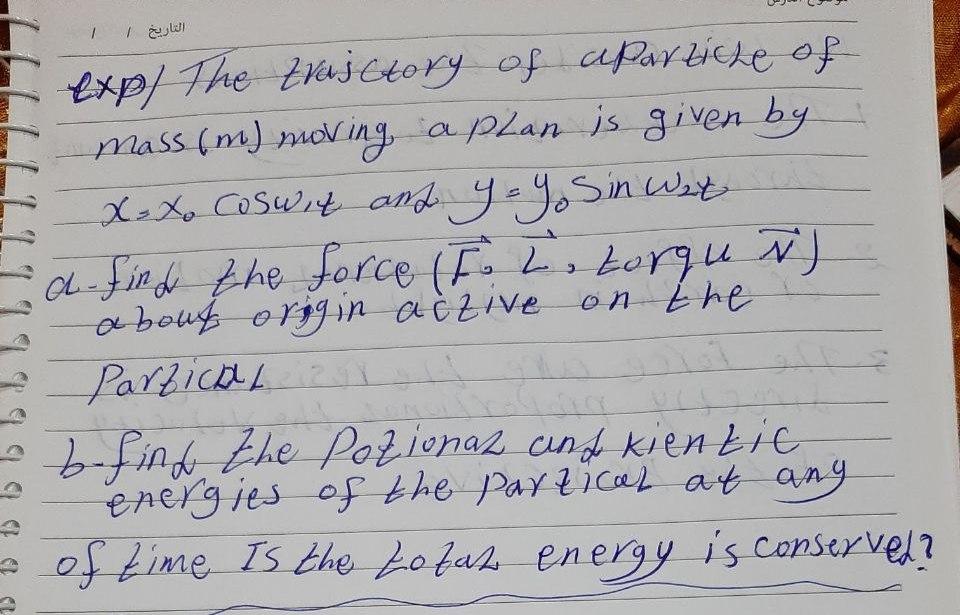 التاريخ / /
exp/ The trajctory of a particle of
mass (m) moving a plan is given by
x = x₀ cosw₁t and y = y₀ sin w₂t
a-find the force (F⃗, L⃗, torqu N⃗)
about origin active on the
Partical
b-find the Potional and kientic
energies of the partical at any
of time Is the total energy is conserved?